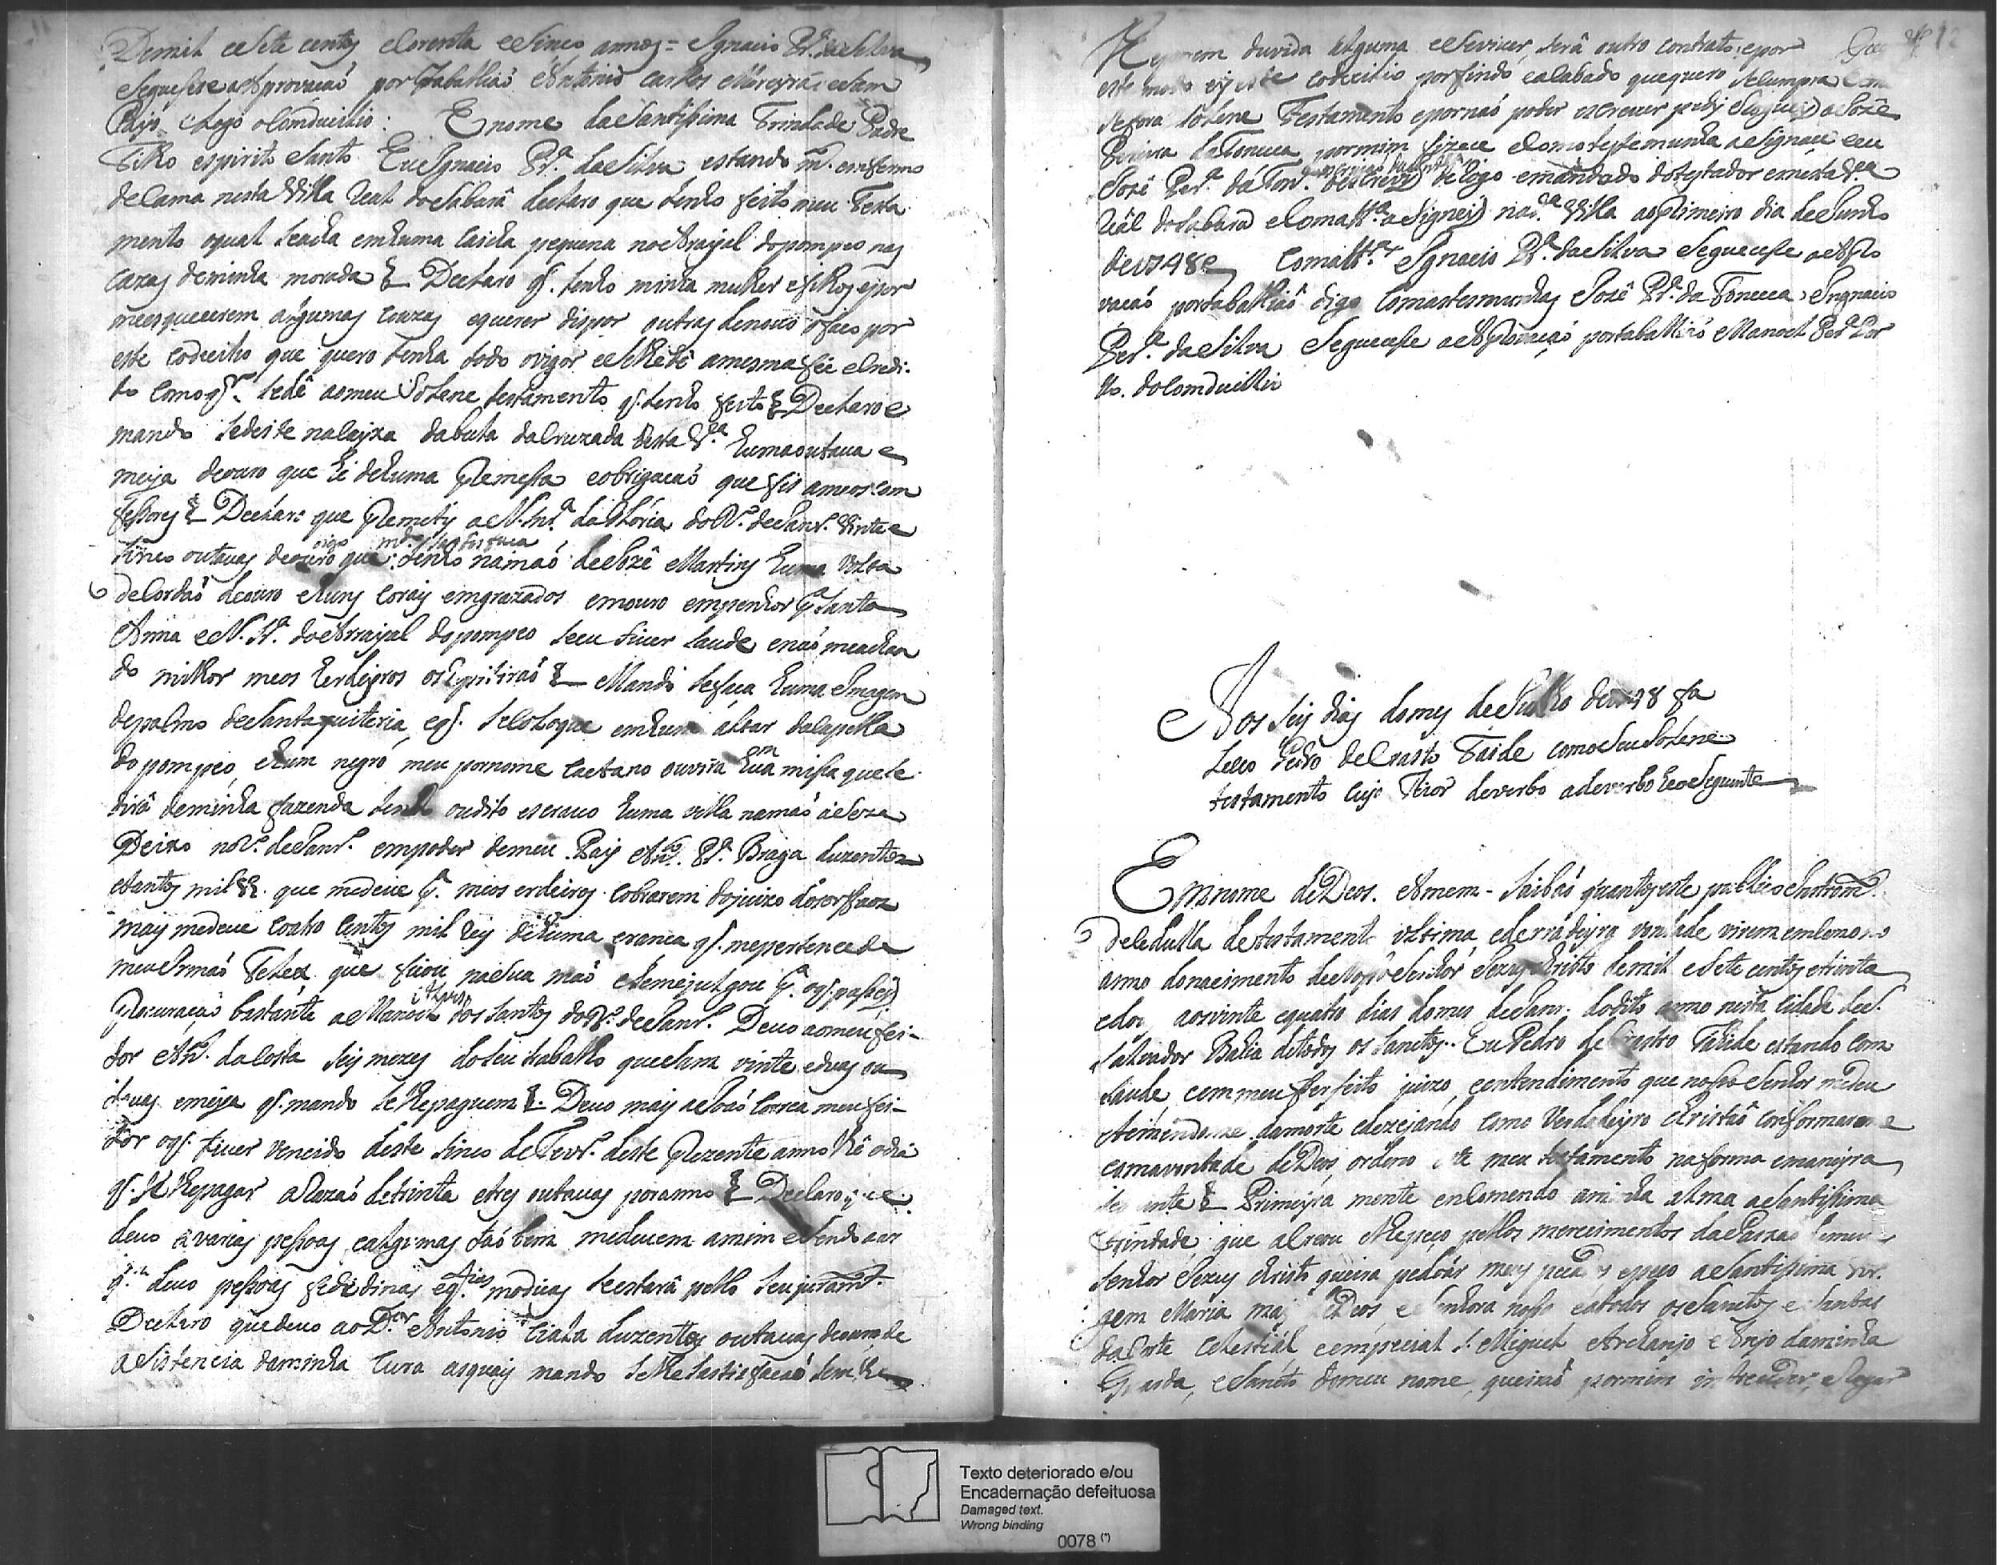 Demil eSete centos eCorenta eSinco annos = Ignacio Pr.ª daSilva
Seguesse aAprovacaõ por Tabaliaõ Antonio Carlos
chego oComducilio : Enome daSantissima Trindade Padre
Filho espirito Santo EuIgnacio Pr.ª daSilva estando m.to emfermo
deCama nesta Villa Real doSabará declaro que tenho feito meu Testa
mento oqual Seacha emhuma Caicha pequena noArrayal dopompeo nas
cazas deminha morada & Declaro q. tenho minha mulher efilhos epor
meesquecerem algumas couzas equerer dispor outras denovo ofaco por
este Codecilho que quero tenha todo ovigor eSelhedê amesma fée eCredi-
to Como Sedê aomeu Solene testamento q. tenho feito & Declaro e
mando Sedeite naCayxa dabula daCruzada desta V.ª huma outava e
meya deouro que hé dehuma Remessa eobrigacaõ que fis ameos com
fessores & Declaro que Remety aN. Snr.ª daGloria doR.º deJanr.º Vinte e
Sinco outavas deouro que tenho namaõ deJozê Martins huma Volta
deCordaõ deouro ehuns Corais emgrazados emouro empenhor p.ª Santa
Anna eN. Sr.ª doArrayal dopompeo Seeu tiver Saude enaõ meachan
do milhor meos herdeyros os & Mando Sefaça huma Imagem
depalmo deSanta quiteria, eq. Secoloque emhum altar dacapella
do pompeo, ehum negro meu pornome Caetano ouvira huã missa quese
dirá deminha fazenda tendo oudito escravo huma vella namaõ aCeza
Deixo noR.º deJanr.º empoder demeu Pay Ant.º Pr.ª Braga duzentos
etantos mil Rs. que medeve p.ª meos erdeiros cobrarem dojuizo dosorfaos
mais medeve coatro Centos mil Reis dehuma eranca q. mepertencede
meuIrmaõ Felex que ficou naSua maõ eSemejulgou p.ª oq. passey
Procuraçaõ bastante aManoel dos Santos doR.º deJanr.º Devo aomeu fei-
tor Ant.º daCosta Seis mezes doSeu trabalho queSam vinte eduas ou
tavas emeya q. mando SelhePaguem &. Devo mais aJoaõ Correa meu fei-
tor oq. tiver vencido deste Sinco deFevr.º deste prezente anno thê odia
q. Selhepagar aRezaõ detrinta etres outavas poranno & Declaro que
devo avarias pessoas ealgumas taõbem medevem amim eSendo as
q. devo pessoas fededinas eq.tias modicas Seestará pello Seu juram.to
Declaro quedevo aoD.or Antonio duzentas outavas deouro de
aSistencia daminha Cura asquais mando Selhe Satisfacaõ Sem
Reparem duvida alguma eSeviver Será outro contrato, epor
este modo ey este Codecilio porfindo, eacabado quequero Secumpra Como
Sefora Solene Testamento epornaõ poder escrever pedy eRoguey aJozê
Pereira daFonceca pormim fizece eComotestemunha aSignace eeu
Jozê Per.ª da Fon.ca oescrevy deRogo emandado dotestador emesta V.ª
Real doSabará eComott.ª aSigney na d.ª Villa aoPrimeiro dia deJunho
de1748 Comott.ª Ignacio Pr.ª daSilva Seguecesse aApro
vacaõ portabalhaõ digo Comotestemunhas Jozê Pr.ª da Fonceca, Ingnacio
Per.ª daSilva Seguecesse aAprovaçaõ portabalhaõ Manoel Per.ª Por
to. doComducillio
Aos Seis dias domes deJulho de1748 fa
leceo Pedro deCrasto Taide comoSeuSolene
testamento Cujo Teor deverbo adeverbo heoSeguinte
Emnome deDeos. Amem - Saibaõ quantos este publico Instrom.to
deCedulla detestamento ultima, ederradeyra vontade virem emComo no
anno donacimento deNosso Senhor Jezus Christo demil eSete centos etrinta
edoi, aosvinte equatro dias domes deJanr.º dodito anno nesta Cidade deS.
Salvador Bahia detodos os Sanctos. EuPedro deCrasto Tahide estando Com
Saude, eemmeu perfeito juizo, eentendimento que nosso Senhor medeu
eteméndome damorte edezejando como Verdadeyro Christaõ conformarme
comavontade deDeos, ordeno este meu testamento naforma emaneyra
Seguinte & Primeyra mente enComendo aminha alma aSantissima
Trindade, que aCreou eRepeço pellos merecimentos daPaxaõ
Senhor Jezus Christo queira pedoár meus pecados epeço aSantissima Vir.
gem Maria may deDeos, eSenhora nossa eatodos osSanctos eSantas
daCorte Celestiál eempecial S. Miguel Archanjo eAnjo daminha
Guarda, eSancto domeu nome, queiraõ pormim interceder, eRogar
Texto deteriorado e/ou
Encadernação defeituosa
Damaged text.
Wrong binding
0078 (*)